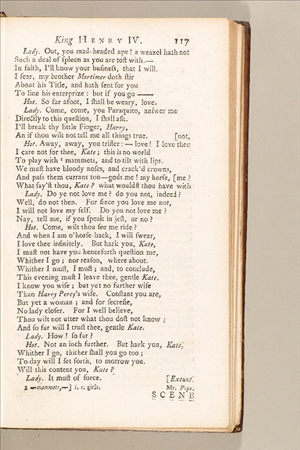 King HENRY IV. 117
Lady. Out, you mad-headed ape! a weazel hath not
Such a deal of ſpleen as you are toſt with.—
In faith, I'll know your buſineſs, that I will.
I fear, my brother Mortimer doth ſtir
About his Title, and hath ſent for you
To line his enterprize: but if you go ——
Hot. So far afoot, I ſhall be weary, love.
Lady. Come, come, you Paraquito, anſwer me
Directly to this queſtion, I ſhall aſk.
I'll break thy little Finger, Harry,
An if thou wilt not tell me all things true. [not,
Hot. Away, away, you trifler: — love! I love thee
I care not for thee, Kate; this is no world
To play with ¹ mammets, and to tilt with lips.
We muſt have bloody noſes, and crack'd crowns,
And paſs them currant too—gods me! my horſe, [me?
What ſay'ſt thou, Kate? what wouldſt thou have with
Lady. Do ye not love me? do you not, indeed?
Well, do not then. For ſince you love me not,
I will not love my ſelf. Do you not love me?
Nay, tell me, if you ſpeak in jeſt, or no?
Hot. Come, wilt thou ſee me ride?
And when I am o'horſe back, I will ſwear,
I love thee infinitely. But hark you, Kate,
I muſt not have you henceforth queſtion me,
Whither I go; nor reaſon, where about.
Whither I muſt, I muſt; and, to conclude,
This evening muſt I leave thee, gentle Kate.
I know you wiſe; but yet no further wiſe
Than Harry Percy's wife. Conſtant you are,
But yet a woman; and for ſecreſie,
No lady cloſer. For I well believe,
Thou wilt not utter what thou doſt not know;
And ſo far will I truſt thee, gentle Kate.
Lady. How! ſo far?
Hot. Not an inch further. But hark you, Kate,
Whither I go, thither ſhall you go too;
To day will I ſet forth, to morrow you.
Will this content you, Kate?
Lady. It muſt of force. [Exeunt.
1 —mammets,—] i. e. girls. Mr. Pope.
SCENE